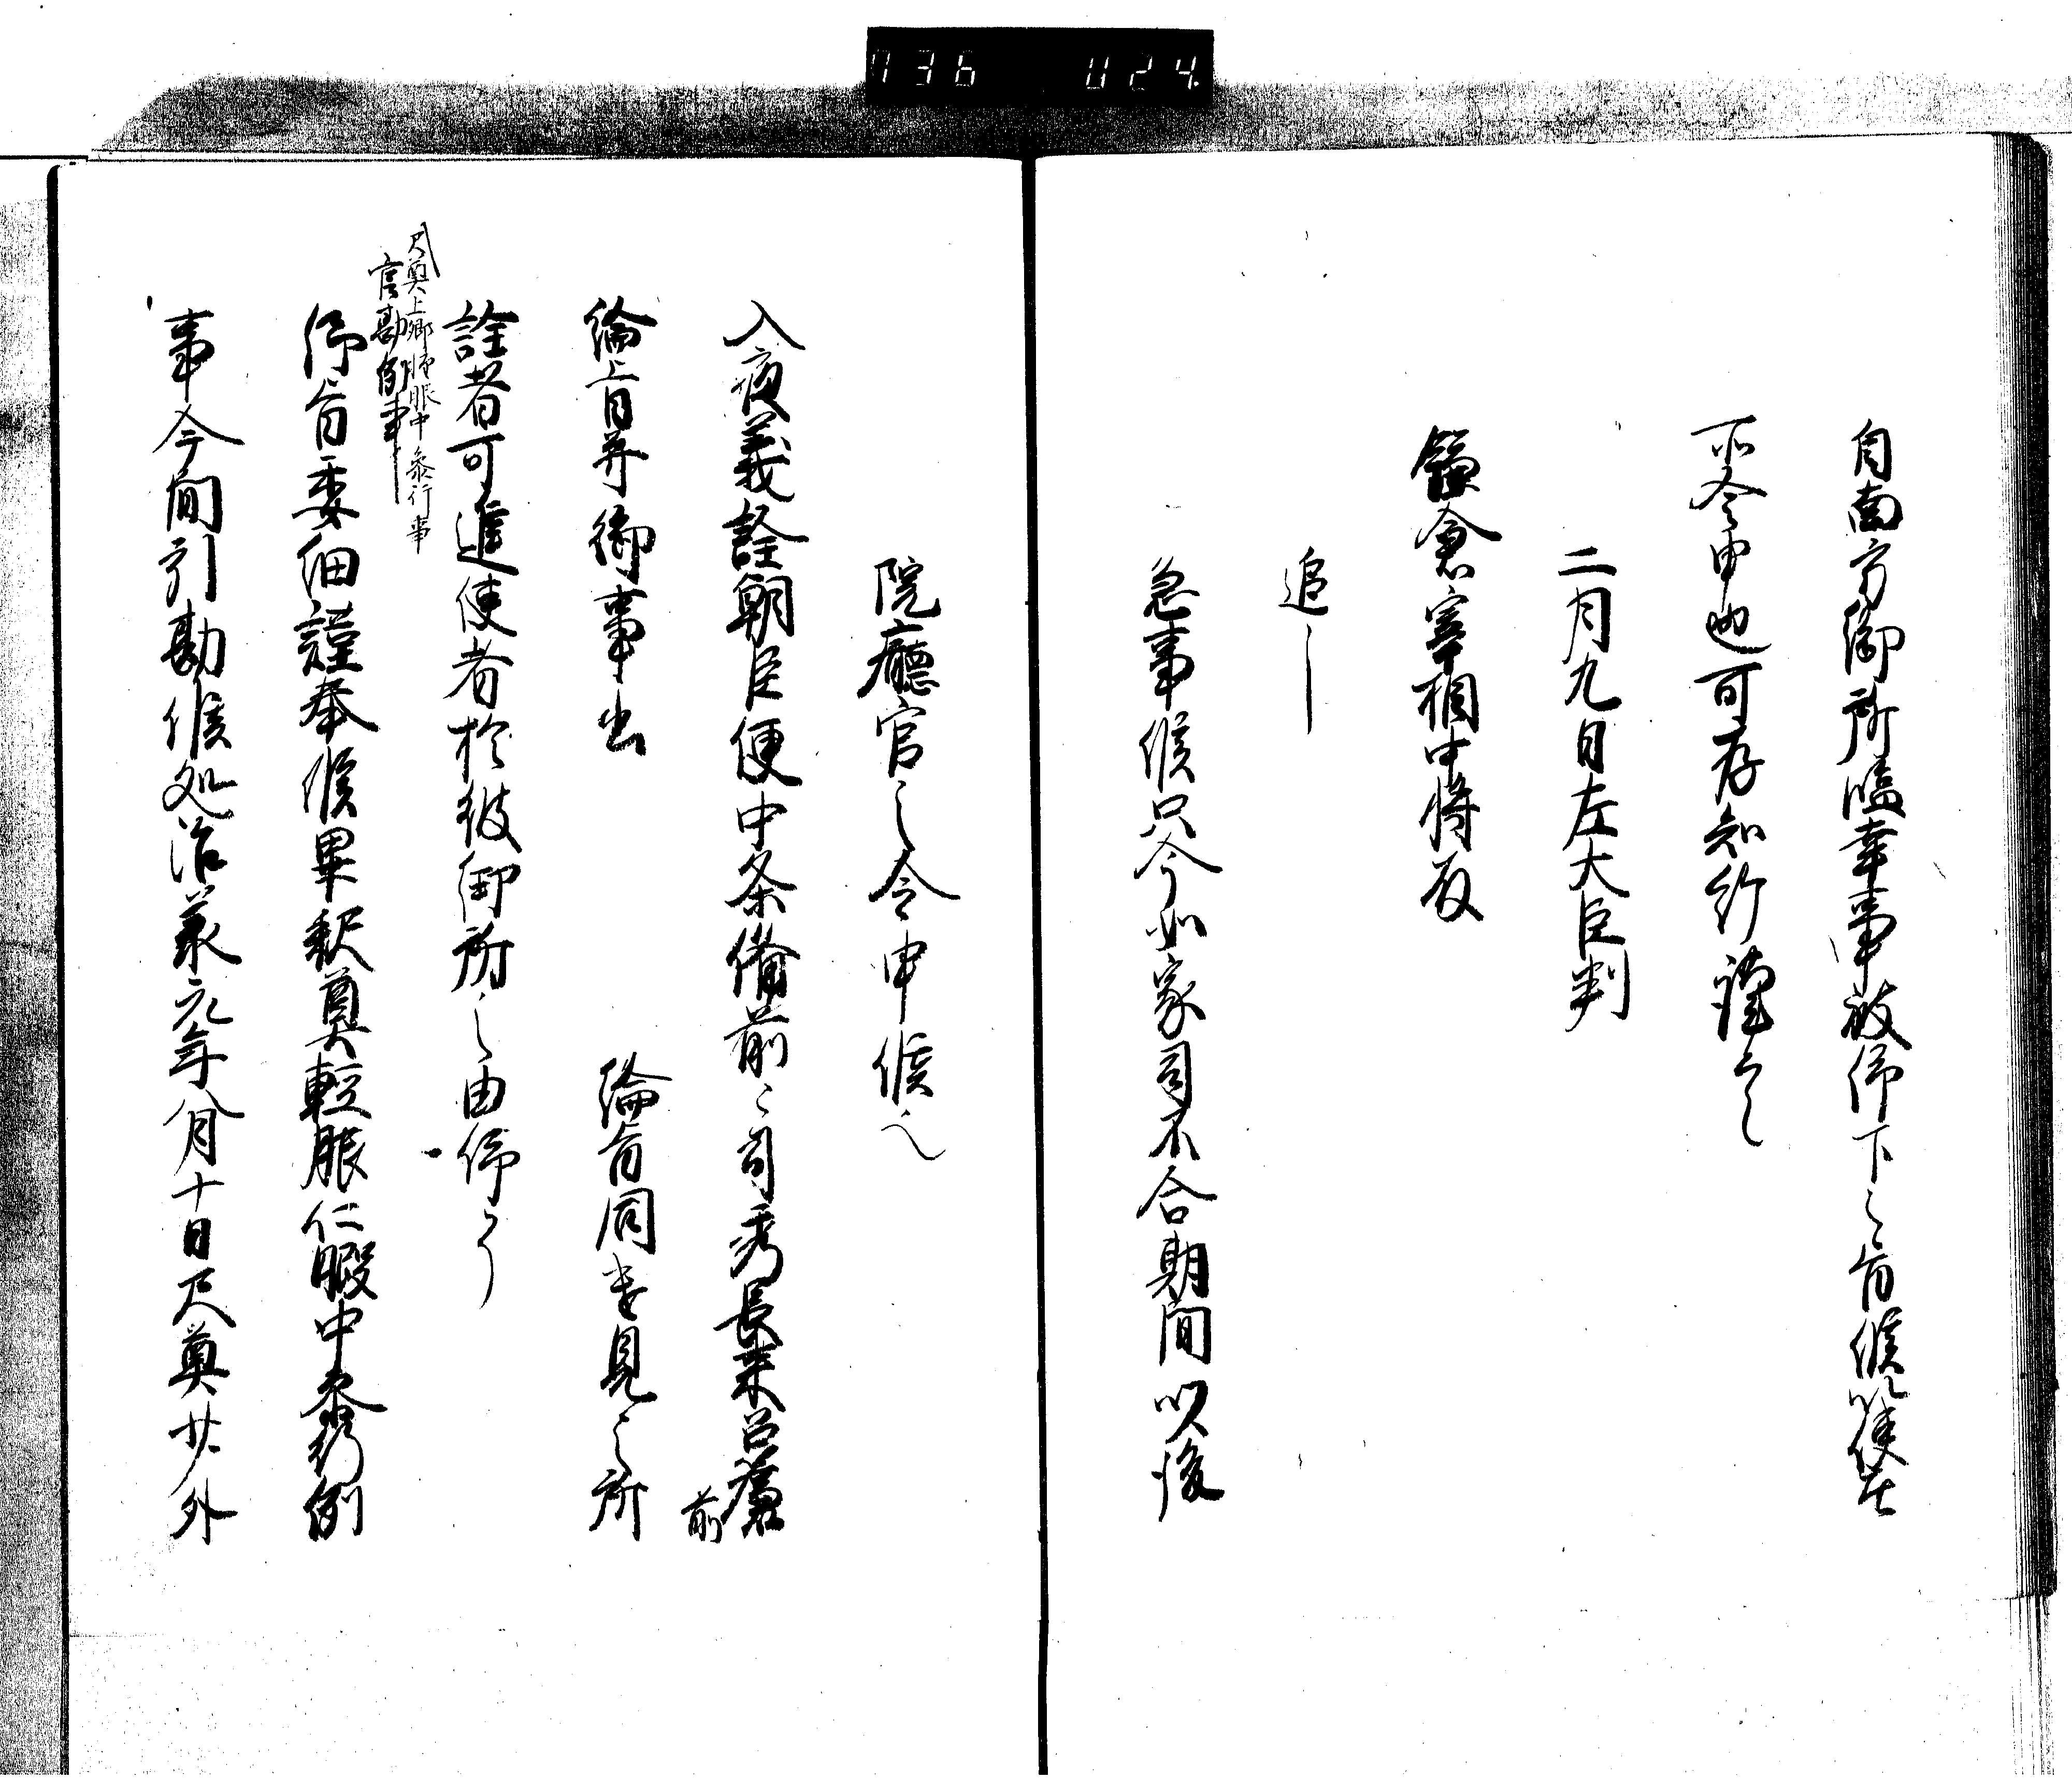 自南方御所臨幸事被仰下之旨候籠僮等
所令申也可存知給謹言
二月九日左大臣判
鎌倉宰相中将殿
追―
急事候只今如家司不合期間以後
院廳官之令申候也
入夜義詮朝臣使中条備前々司秀長来召簾前
綸旨并御事出 綸旨同書見之所
詮者可進使者於彼御所之由仰了
尺奠上卿軽服中参行事
官勘例事
仰旨委細謹奉候畢釈奠軽服仁暇中参行例
事今間引勘候処治承元年八月十日尺奠廿外